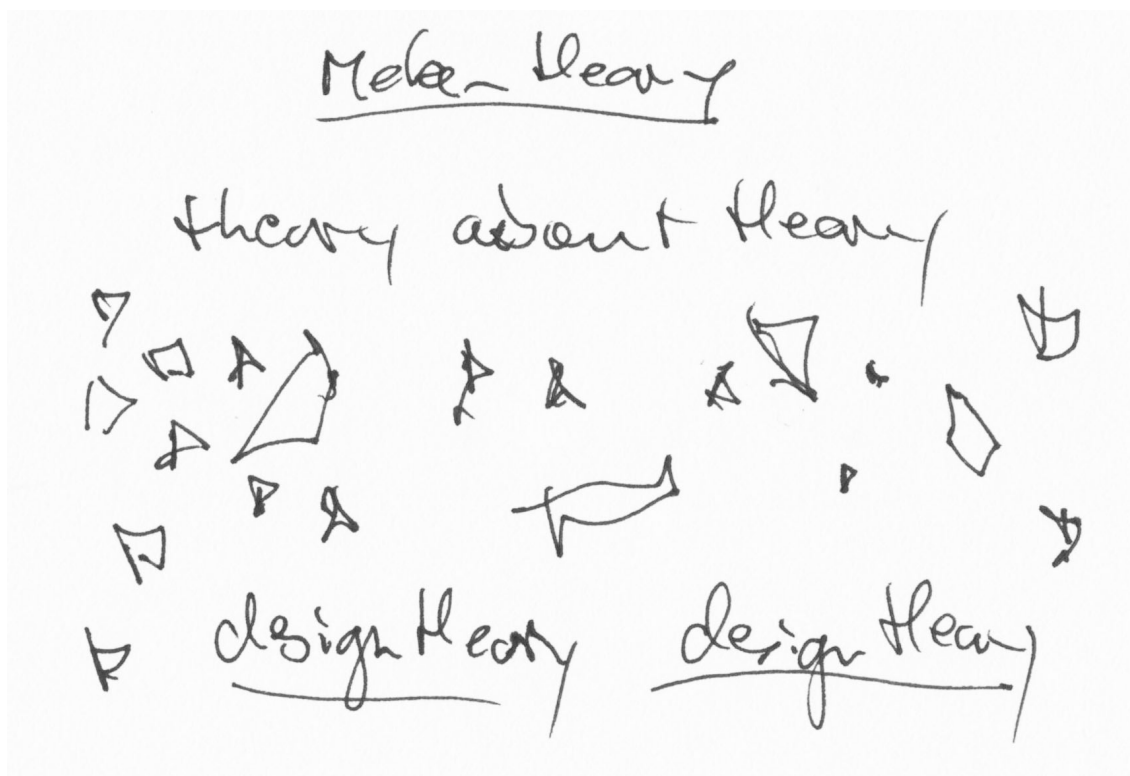 Meta-theory
theory about theory
design theory design theory